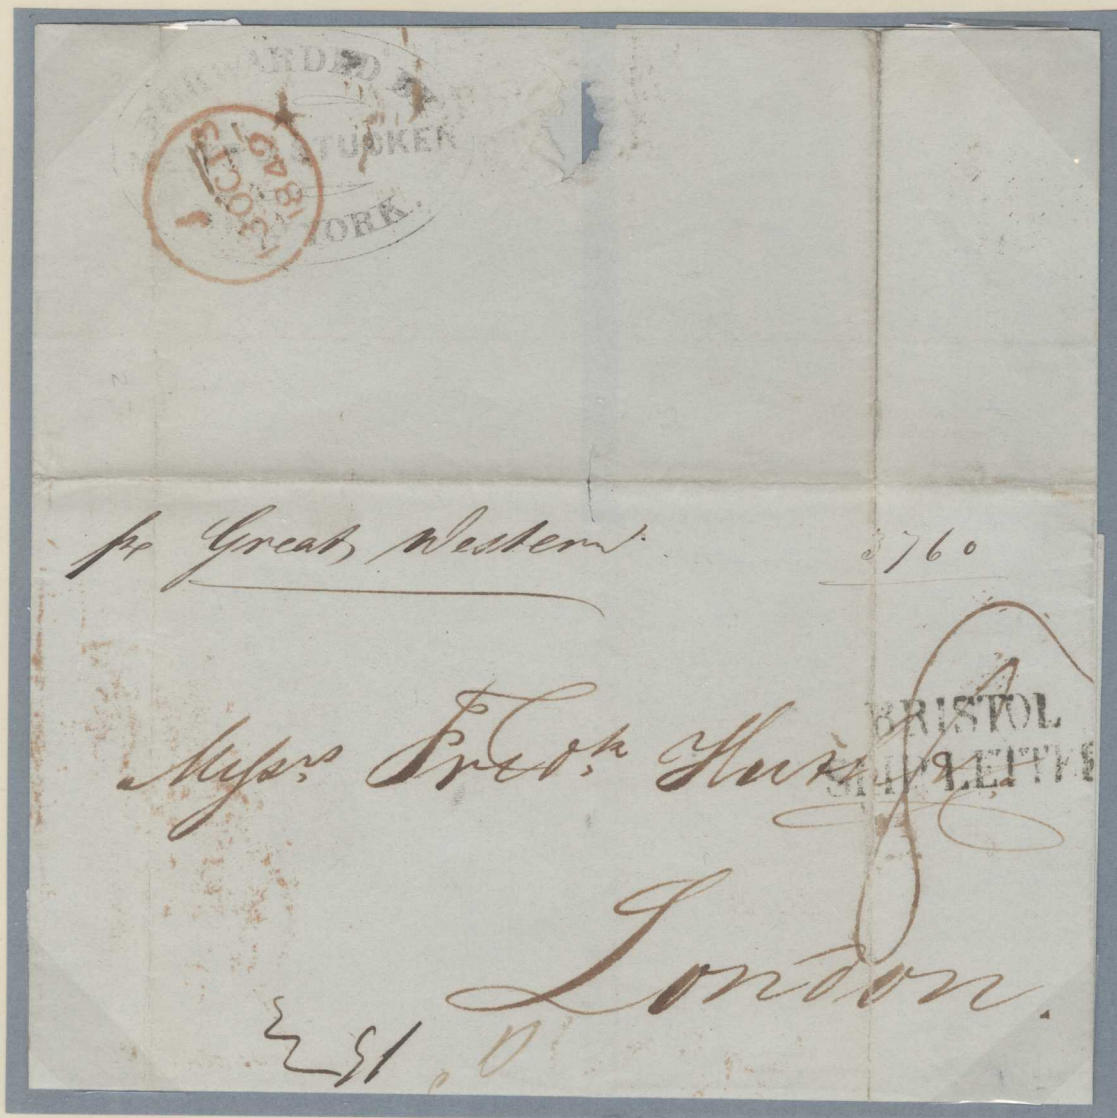 FORWARDED BY
TUCKER
YORK.
13 OC 13
1842
pr Great Western
3760
BRISTOL
SHIP LETTER
Messrs. Fredk. Huth & Co.
London.